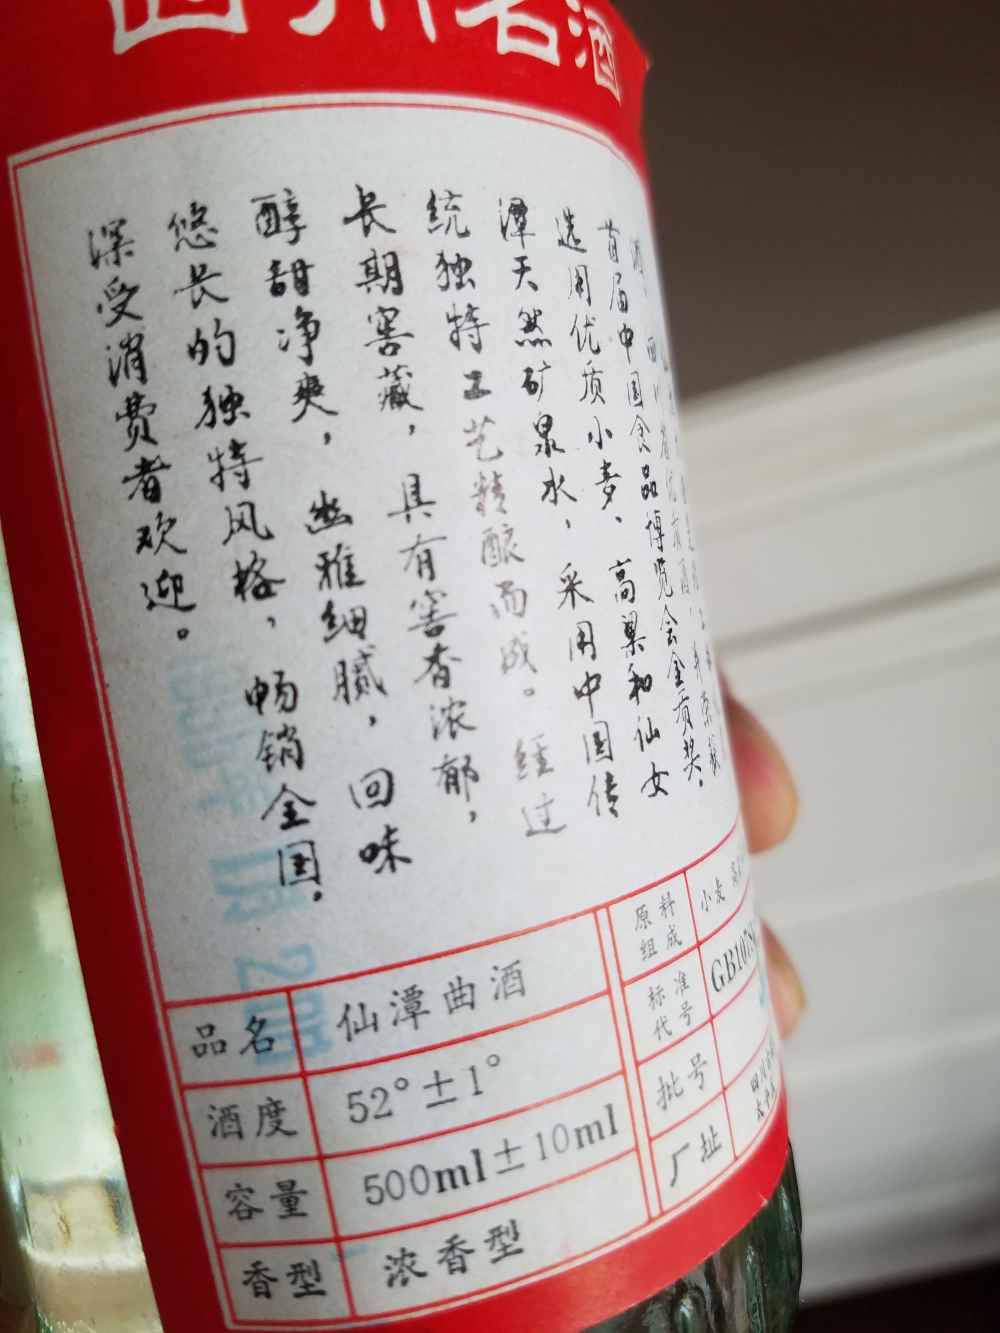 四川名酒
四川省优质酒，并荣获
首届中国食品博览会金质奖。
选用优质小麦、高粱和仙女
潭天然矿泉水，采用中国传
统独特工艺精酿而成。经过
长期窖藏，具有窖香浓郁，
醇甜净爽，幽雅细腻，回味
悠长的独特风格，畅销全国。
深受消费者欢迎。
品名 仙潭曲酒
酒度 52°±1°
容量 500ml±10ml
香型 浓香型
原料组成 小麦
标准代号 GB107
批号
厂址 四川